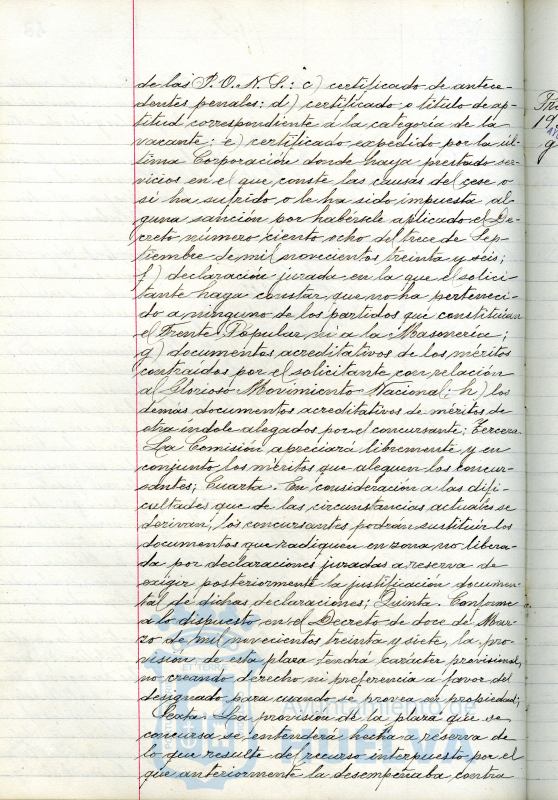 de las J.O.N.S.: c) certificado de antece-
dentes penales: d) certificado o título de ap-
titud correspondiente a la categoría de la
vacante; e) certificado expedido por la úl-
tima Corporación donde haya prestado ser-
vicios en el que conste las causas del cese o
si ha sufrido o le ha sido impuesta al-
guna sanción por habérsele aplicado el De-
creto número ciento ocho del trece de Sep-
tiembre de mil novecientos treinta y seis;
f) declaración jurada en la que el solici-
tante haga constar que no ha perteneci-
do a ninguno de los partidos que constituían
el Frente Popular, ni a la Masonería;
g) documentos acreditativos de los méritos
contraidos por el solicitante con relación
al Glorioso Movimiento Nacional; h) los
demás documentos acreditativos de méritos de
otra indole alegados por el concursante; Tercera.
La Comisión apreciará libremente y en
conjunto los méritos que aleguen los concur-
santes; Cuarta. En consideración a las difi-
cultades que de las circunstancias actuales se
derivan, los concursantes podrán sustituir los
documentos que radiquen en zona no libera-
da por declaraciones juradas a reserva de
exigir posteriormente la justificación documen-
tal de dichas declaraciones; Quinta. Conforme
a lo dispuesto en el Decreto de doce de Mar-
zo de mil novecientos treinta y siete, la pro-
visión de esta plaza tendrá carácter provisional,
no creando derecho ni preferencia a favor del
designado para cuando se provea en propiedad;
Sexta. La provisión de la plaza que se
concursa se entenderá hecha a reserva de
lo que resulte del recurso interpuesto por el
que anteriormente la desempeñaba contra
Ayuntamiento de
HUELVA